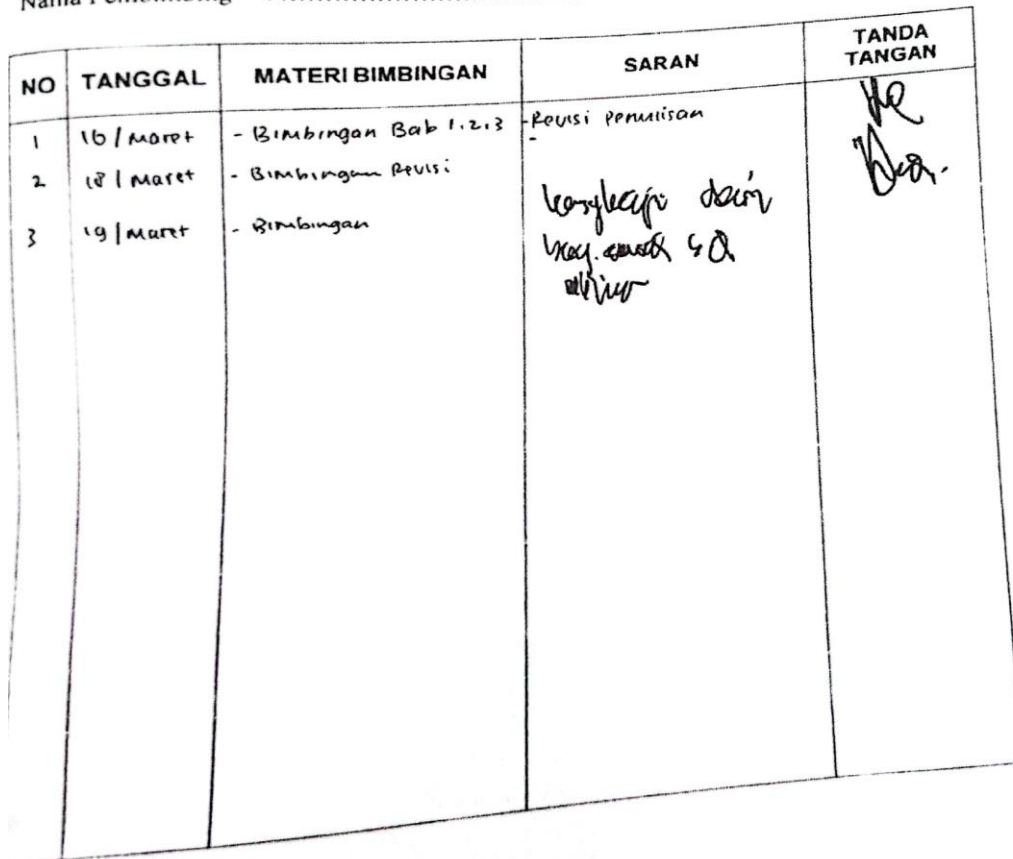 Nama Pembimbing
NO TANGGAL MATERI BIMBINGAN SARAN TANDA TANGAN
1 16 / Maret - Bimbingan Bab 1.2.3 - Revisi Penulisan
-
2 18 / Maret - Bimbingan Revisi
3 19 / Maret - Bimbingan